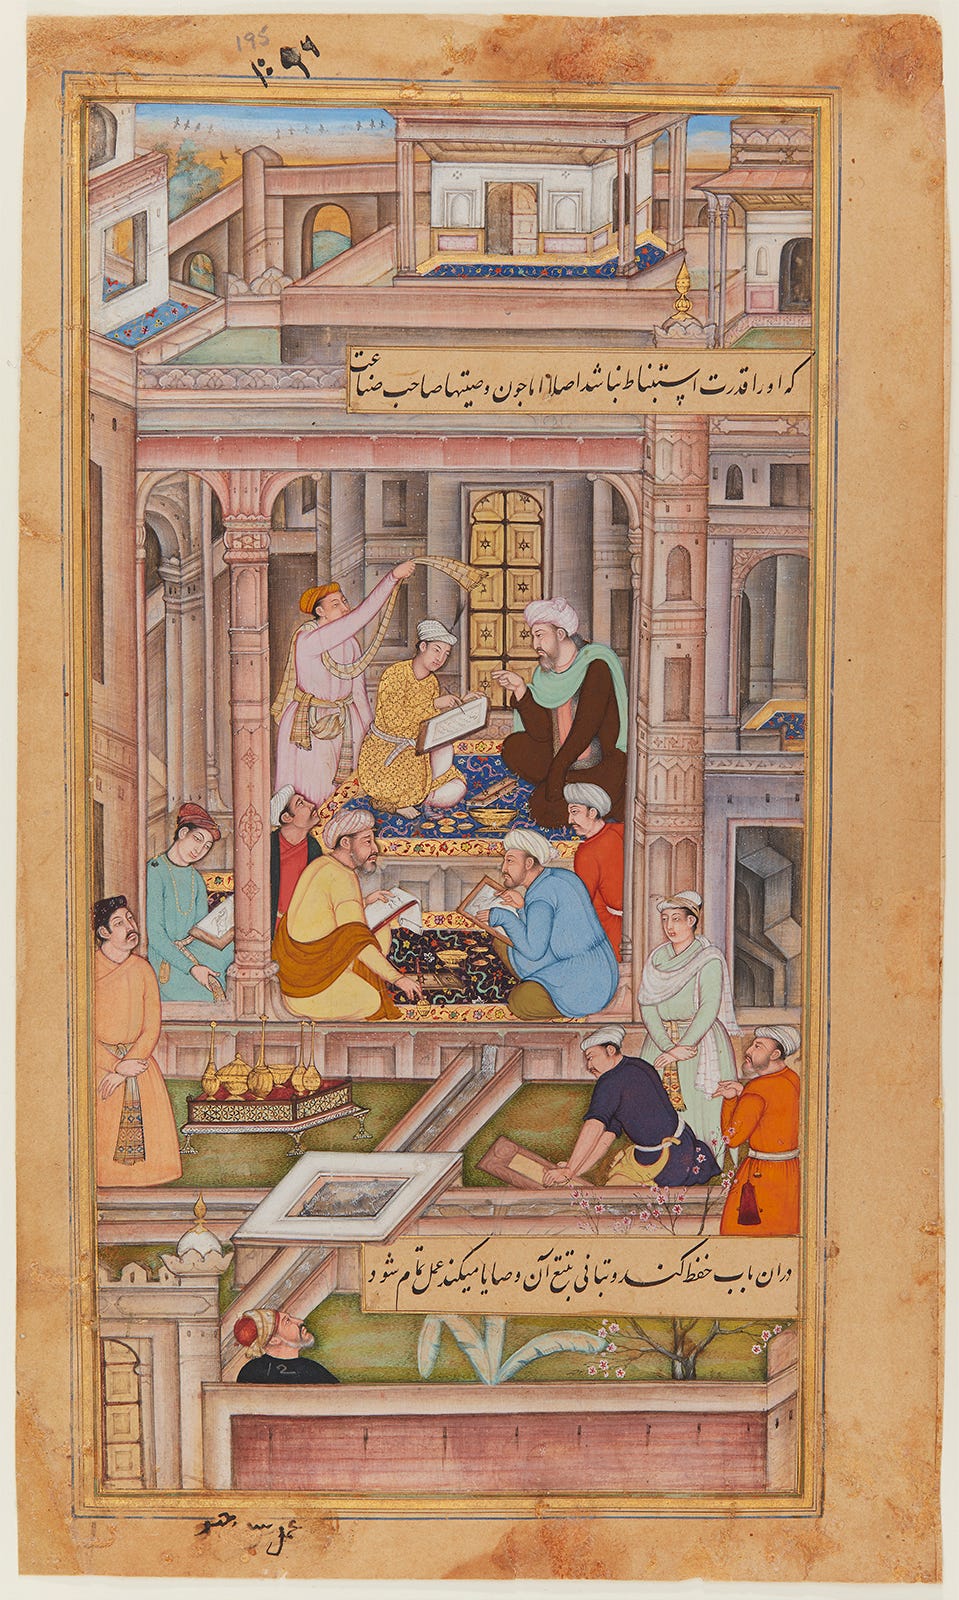 195
که او را قدرت استنباط نباشد اصلا اما چون وصیتها صاحب صناعت
در ان باب حفظ کند و تبانی بتتبع آن وصایا میکند عمل تمام شود
12